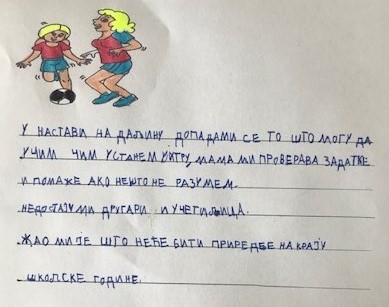 У НАСТАВИ НА ДАЉИНУ ДОПАДАМИ СЕ ТО ШТО МОГУ ДА
УЧИМ ЧИМ УСТАНЕМ УЈТРУ, МАМА МИ ПРОВЕРАВА ЗАДАТКЕ
И ПОМАЖЕ АКО НЕШТО НЕ РАЗУМЕМ.
НЕДОСТАЈУ МИ ДРУГАРИ И УЧЕТИЉИЦА.
ЖАО МИ ЈЕ ШТО НЕЋЕ БИТИ ПРИРЕДБЕ НА КРАЈУ
ШКОЛСКЕ ГОДИНЕ.